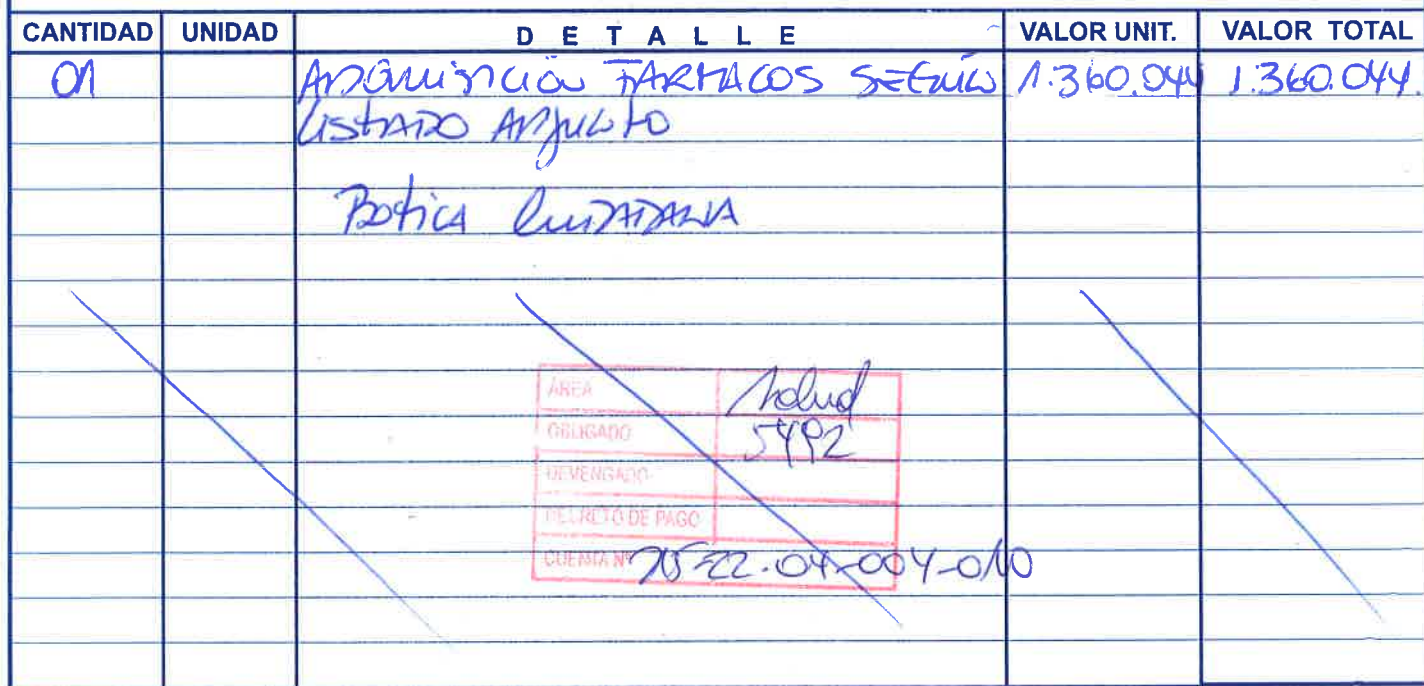 CANTIDAD UNIDAD DETALLE VALOR UNIT. VALOR TOTAL
01 ADQUISICIÓN FARMACOS SEGÚN 1.360.044 1.360.044.
LISTADO ADJUNTO
BOTICA CIUDADANA
ÁREA Salud
OBLIGADO 5492
DEVENGADO
DECRETO DE PAGO
CUENTA Nº 215-22-04-004-010